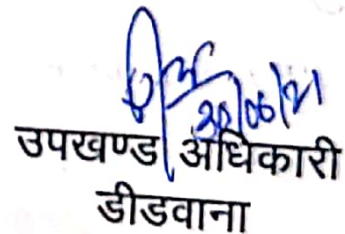 30/06/21
उपखण्ड अधिकारी
डीडवाना